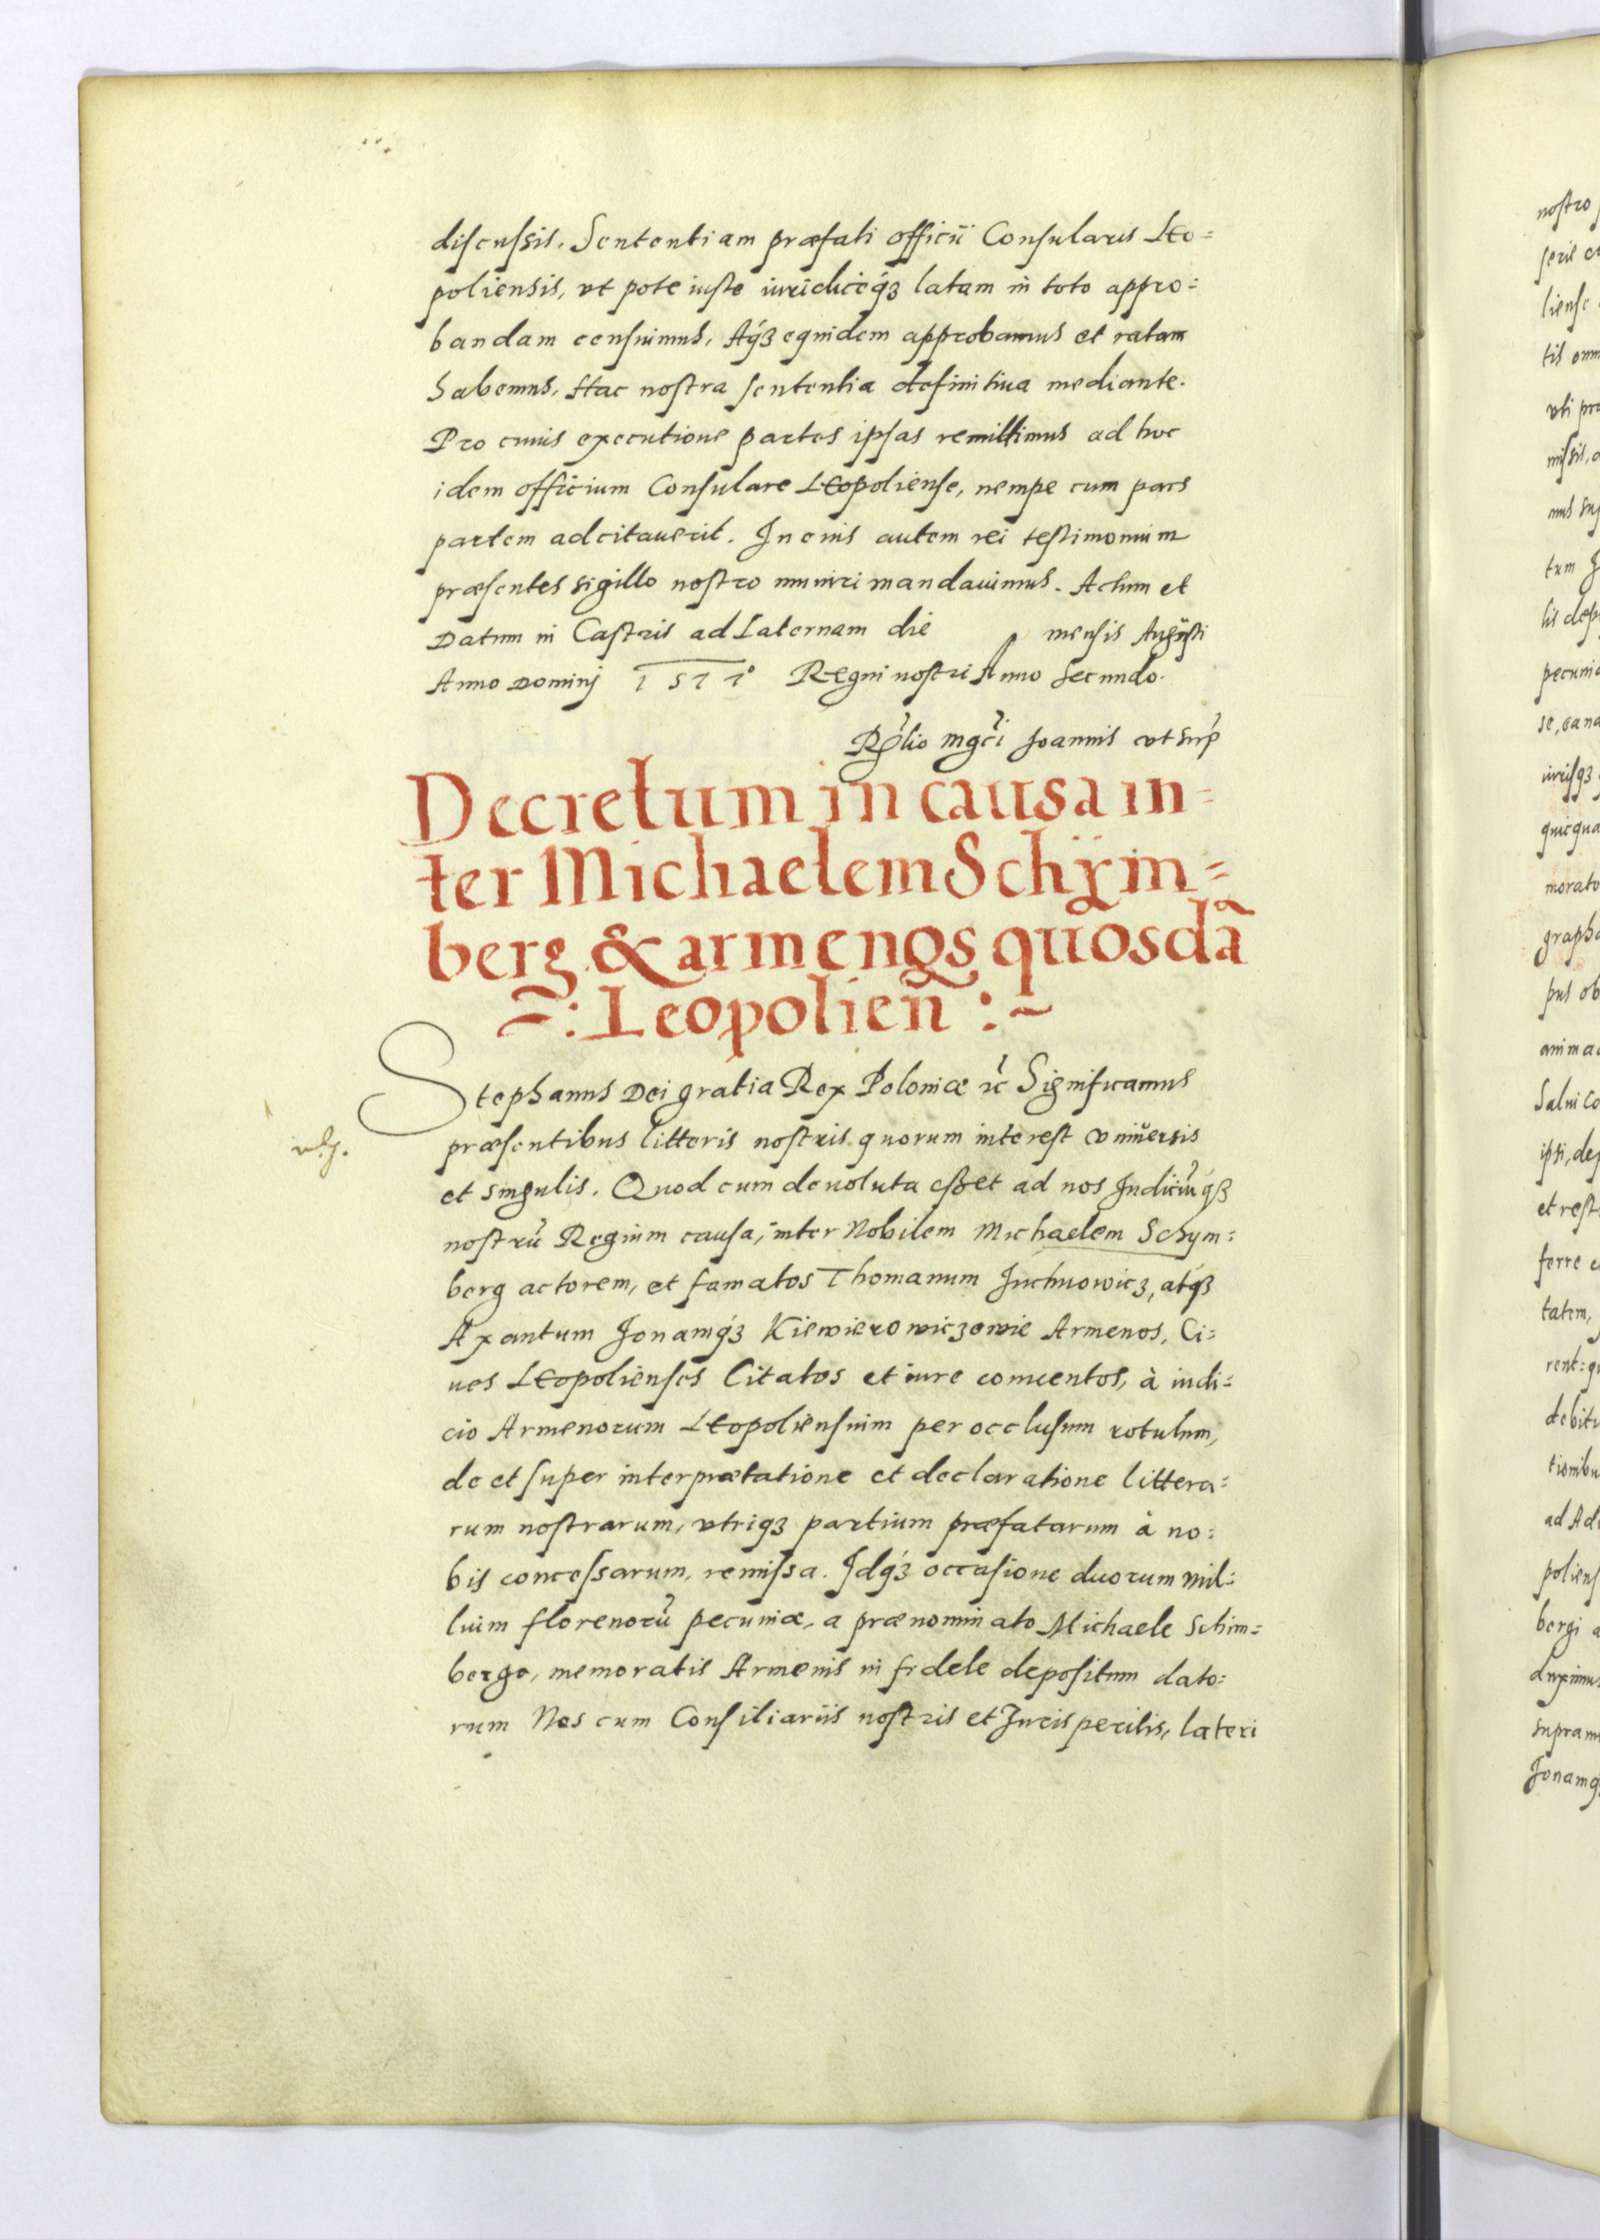 discussis. Sententiam præfati officii Consularis Leo=
poliensis, vt pote iuste iuridiceq́ꝫ latam in toto appro=
bandam censuimus. Aq́ꝫ equidem approbamus et ratam
habemus. Hac nostra sententia definitiua mediante.
Pro cuius executione partes ipsas remittimus ad hoc
idem officium Consulare Leopoliense, nempe cum pars
partem adcitauerit. In cuius autem rei testimonium
præsentes sigillo nostro muniri mandauimus. Actum et
Datum in Castris ad Laternam die mensis Augusti
Anno Dominj 1577° Regni nostri Anno Secundo.
Rłlio mgci Joannis vt supͬ
Decretum in causa in=
ter Michaelem Schÿm=
berg & armenos quosdã
~: Leopolieñ :~
Stephanus Dei gratia Rex Poloniæ ꝛc̃ Significamus
præsentibus litteris nostris quorum interest vniuersis
et singulis. Quod cum deuoluta esset ad nos Judiciuq́ꝫ
nostrũ Regium causa, inter Nobilem Michaelem Schym=
berg actorem, et famatos Thomanum Juchnowicz, atq́ꝫ
Axantum Jonamq́ꝫ Kiewierowiczowie Armenos, Ci=
ues Leopolienses Citatos et iure conuentos, à iudi=
cio Armenorum Leopoliensium per occlusum rotulum,
de et super interprætatione et declaratione littera=
rum nostrarum, vtriqꝫ partium præfatarum à no=
bis concessarum, remissa. Idq́ꝫ occasione duorum mil=
lium florenorũ pecuniæ, a prænominato Michaele Schim=
bergo, memoratis Armenis in fidele depositum dato=
rum Nos cum Consiliariis nostris et Jurisperitis, lateri